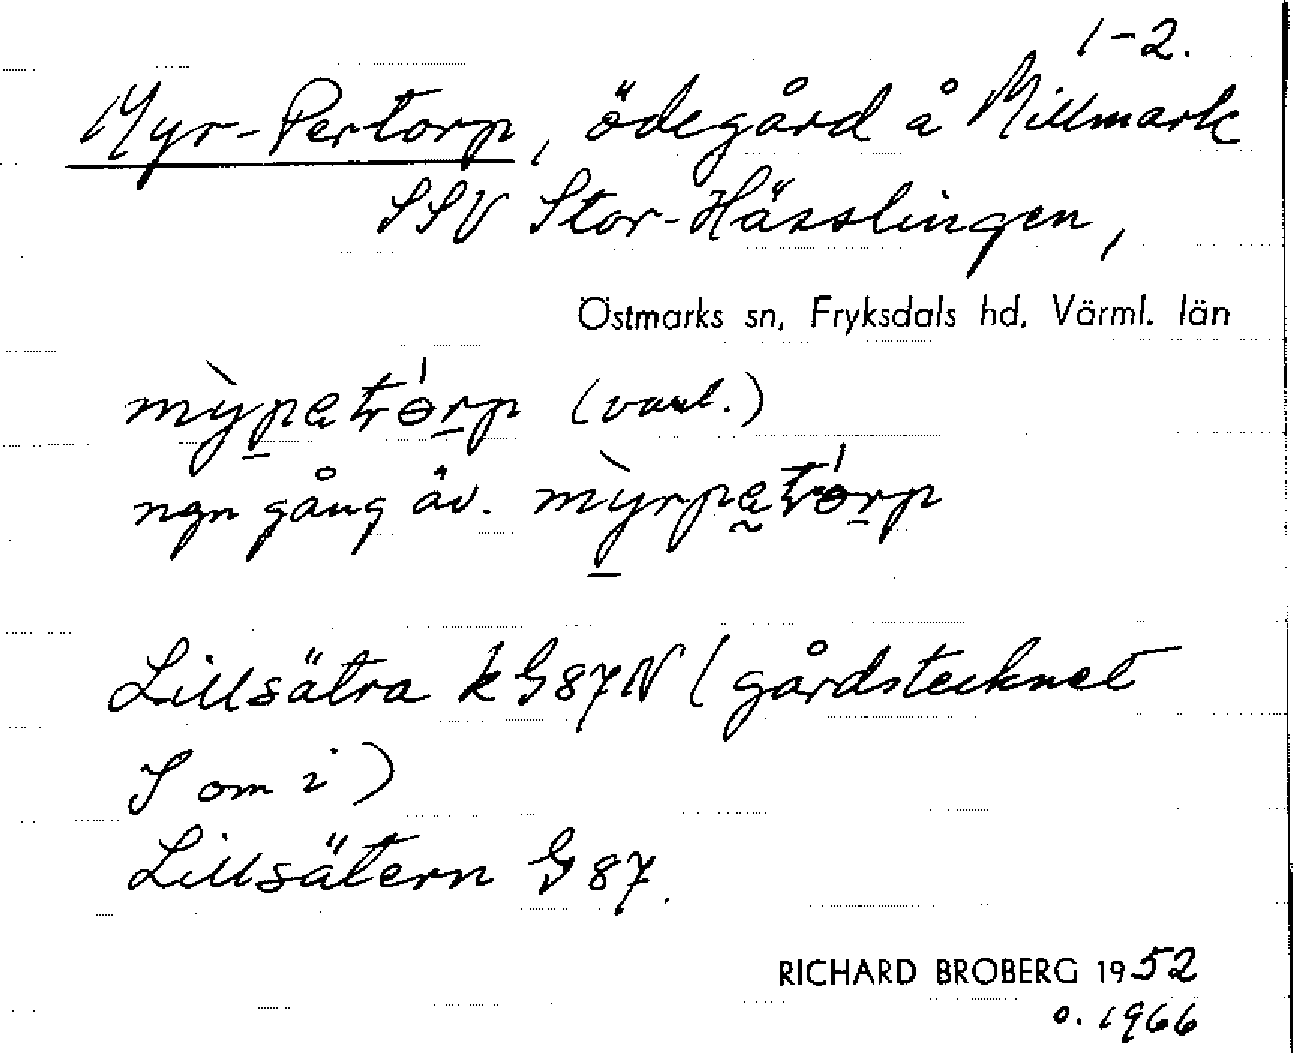 1-2.
Myr-Pertorp, ödegård å Millmark
SSV Stor-Hässlingen,
Östmarks sn, Fryksdals hd, Värml. län
mỳpetrórp (vanl.)
ngn gång äv. mỳrpetrórp
Lillsätra k G87N (gårdstecknet
S om i)
Lillsätern G87.
RICHARD BROBERG 1952
o. 1966